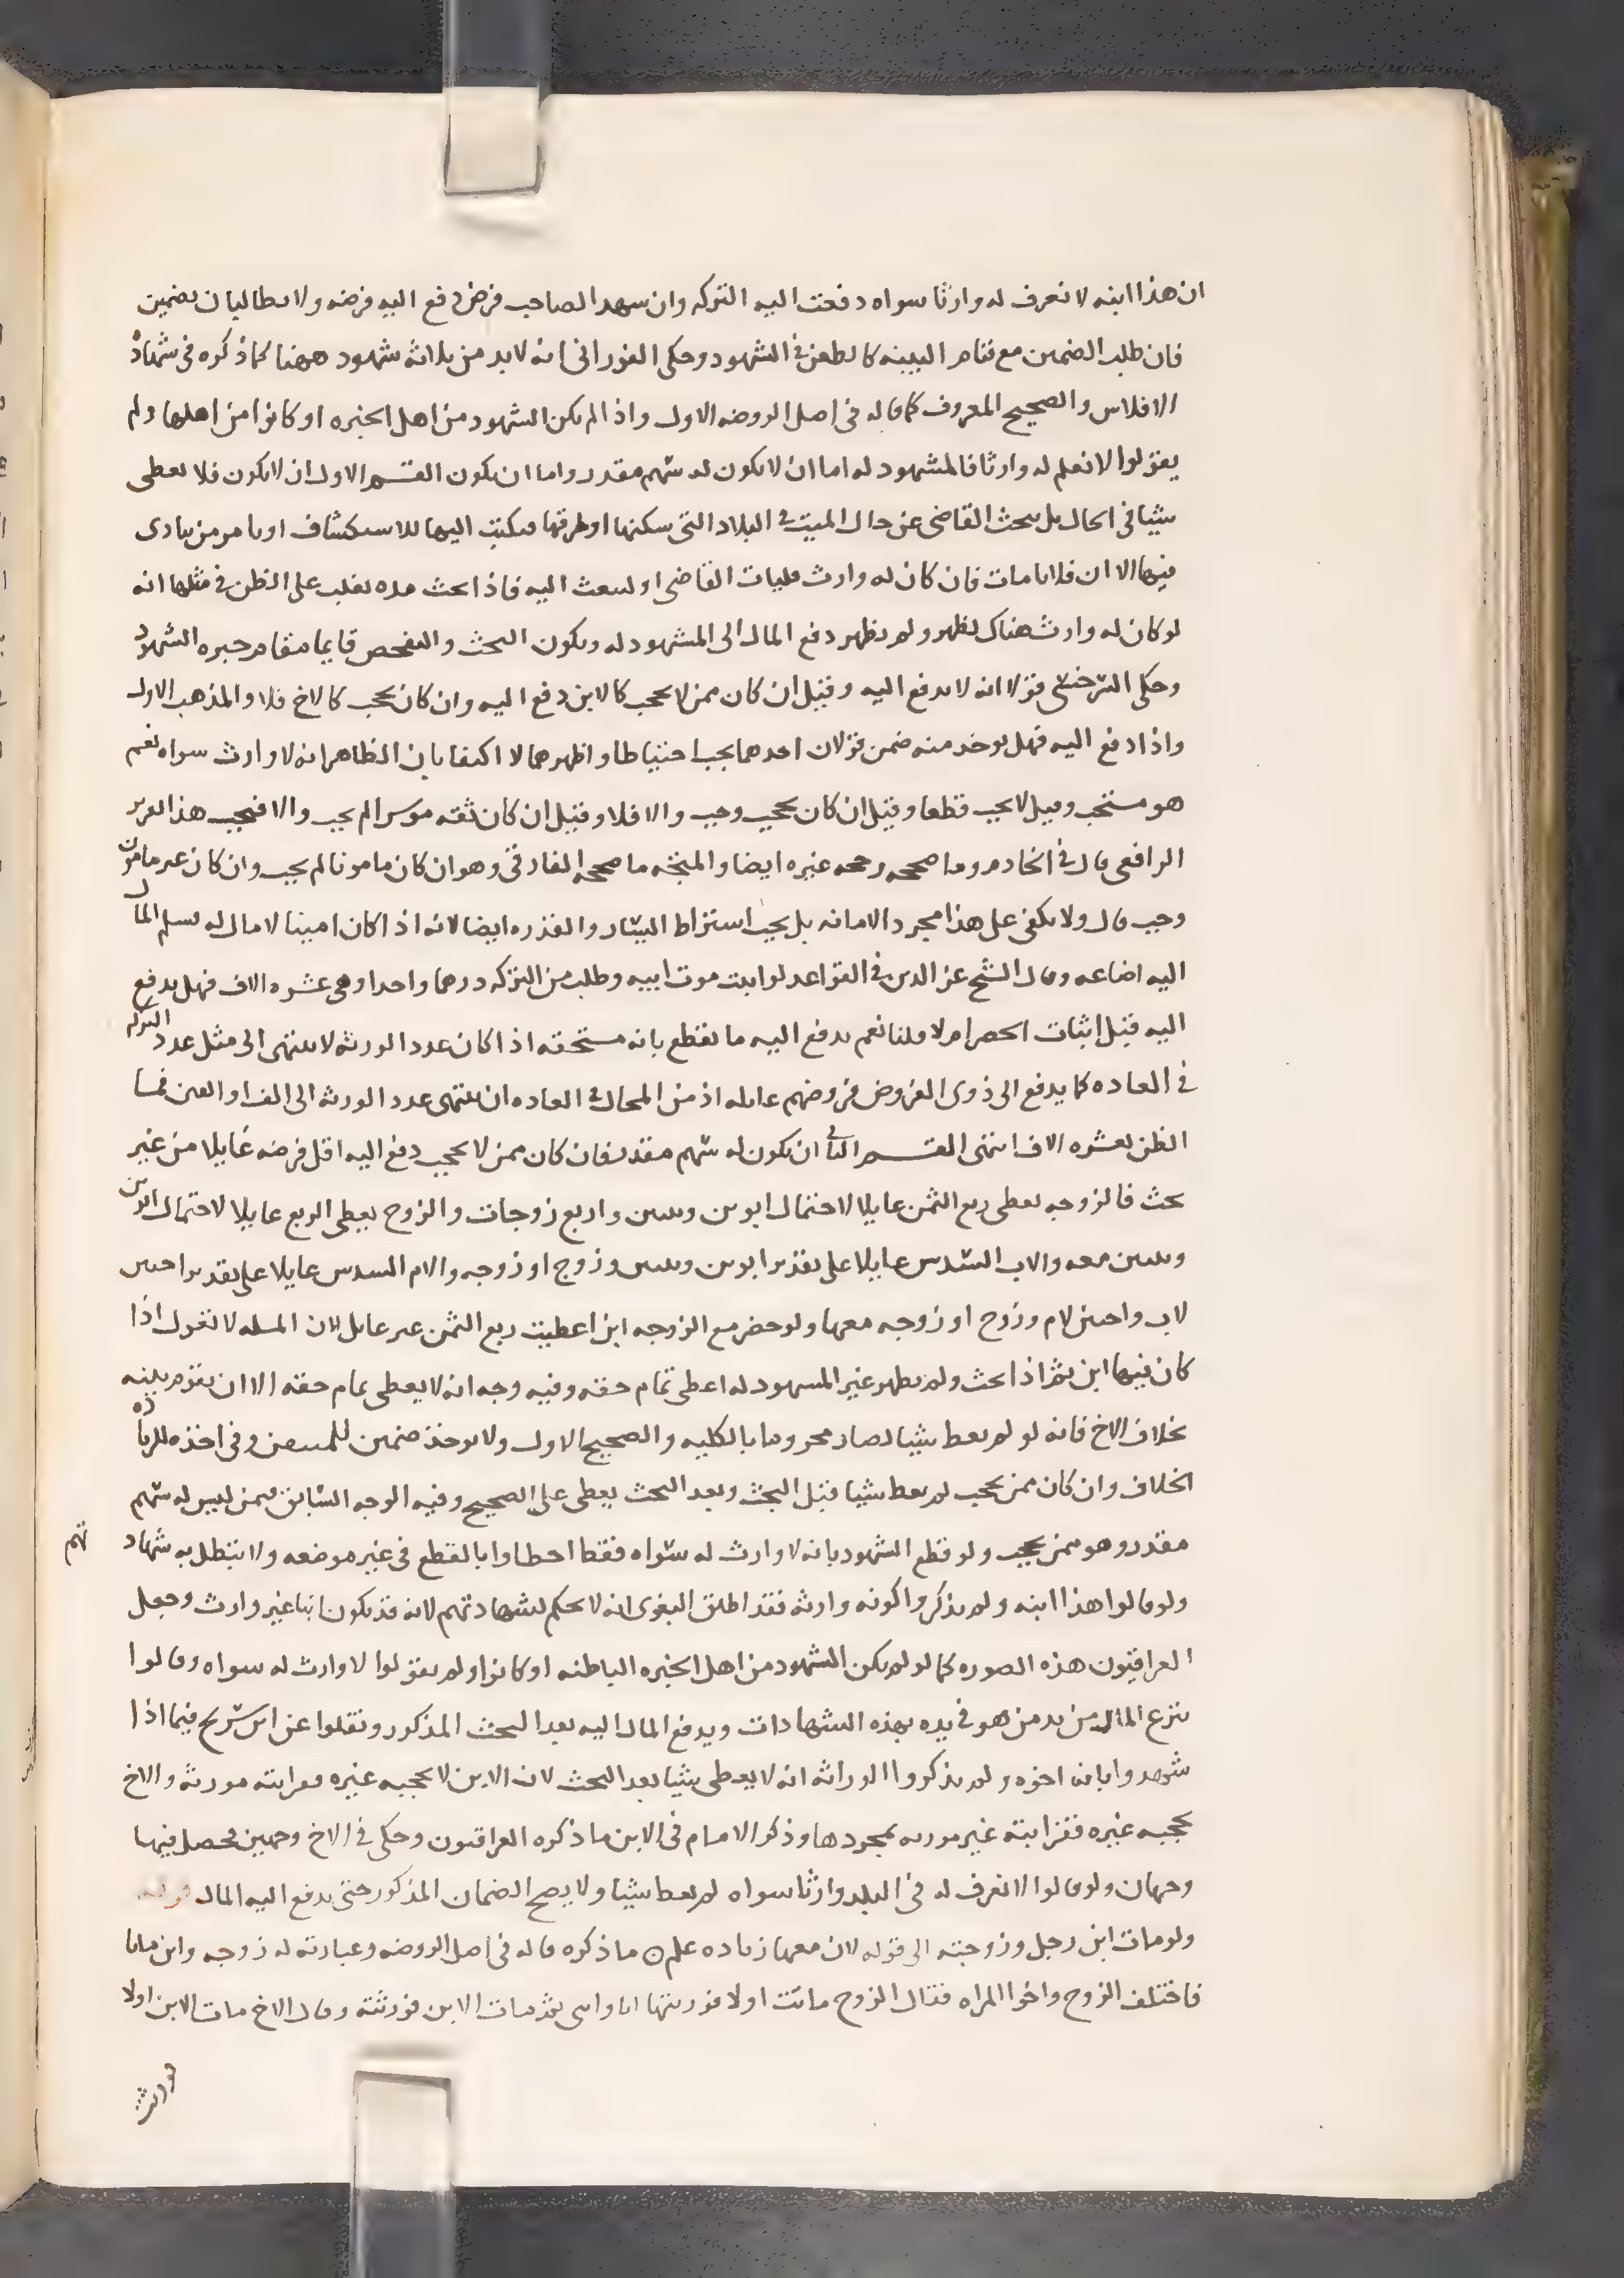 ان هذا ابنه لا نعرف له وارثا سواه دفعت اليه التركه وان شهد الصاحب فرض دفع اليه فرضه ولا يطالبان بضمين
فان طلب الضمين مع قيام البينه كالطعن في الشهود وحكى الفوراني انه لابد من ثلاثه شهود ههنا كما ذكره في شهادة
الافلاس والصحيح المعروف كما قاله في اصل الروضه الاول واذا لم يكن الشهود من اهل الخبره او كانوا من اهلها ولم
يقولوا لا نعلم له وارثا فالمشهود له اما ان لا يكون له سهم مقدر واما ان يكون القسم الاول ان لا يكون فلا يعطى
شيا في الحال بل يبحث القاضي عن حال الميت في البلاد التي سكنها او طرقها فيكتب اليها للاستكشاف او يامر من ينادى
فيها الا ان فلانا مات فان كان له وارث فليات القاضي او ليبعث اليه فاذا بحث مده يغلب على الظن في مثلها انه
لو كان له وارث هناك لظهر ولم يظهر دفع المال الى المشهود له ويكون البحث والتفحص قايما مقام خبره الشهود
وحكى السرخسي قولا انه لا يدفع اليه وقيل ان كان ممن لا يحجب كالابن دفع اليه وان كان يحجب كالاخ فلا والمذهب الاول
واذا دفع اليه فهل يوخذ منه ضمين قولان احدهما يجب احتياطا واظهرهما لا اكتفا بان الظاهر انه لا وارث سواه نعم
هو مستحب وقيل لا يجب قطعا وقيل ان كان يحجب وجب والا فلا وقيل ان كان ثقه موسرا لم يجب والا فيجب هذا تقرير
الرافعي قال في الخادم وما صححه رجحه غيره ايضا والمتجه ما صححه الفارقي وهو ان كان مامونا لم يجب وان كان غير مامون
وجب قال ولا يكفي على هذا مجرد الامانه بل يجب اشتراط اليسار والقدره ايضا لانه اذا كان امينا لا مال له تسلم المال
اليه اضاعه وقال الشيخ عز الدين في القواعد لو اثبت موت ابيه وطلب من التركه درهما واحدا وهي عشره الاف فهل يدفع
اليه قبل اثبات الحصر ام لا قلنا نعم يدفع اليه ما يقطع بانه مستحقه اذا كان عدد الورثه لا ينتهى الى مثل عدد التركه
في العاده كما يدفع الى ذوى الفروض فروضهم عايله اذ من المحال في العاده ان ينتهى عدد الورثه الى الف او الفين فما
الظن بعشره الاف انتهى القسم الثاني ان يكون له سهم مقدر فان كان ممن لا يحجب دفع اليه اقل فرضه عايلا من غير
بحث فالزوجه تعطى ربع الثمن عايلا لاحتمال ابوين وبنتين واربع زوجات والزوج يعطى الربع عايلا لاحتمال ابوين
وبنتين معه والاب السدس عايلا على تقدير ابوين وبنتين وزوج او زوجه والام السدس عايلا على تقدير اختين
لاب واختين لام وزوج او زوجه معها ولو حضر مع الزوجه ابن اعطيت ربع الثمن غير عايل لان المسله لا تعول اذا
كان فيها ابن ثم اذا بحث ولم يظهر غير المشهود له اعطى تمام حقه وفيه وجه انه لا يعطى تمام حقه الا ان يقوم بينه
بخلاف الاخ فانه لو لم يعط شيا لصار محروما بالكليه والصحيح الاول ولا يوخذ ضمين للمتيقن وفي اخذه للزيادة
الخلاف وان كان ممن يحجب لم يعط شيا قبل البحث وبعد البحث يعطى على الصحيح وفيه الوجه السابق فيمن ليس له سهم
مقدر وهو ممن يحجب ولو قطع الشهود بانه لا وارث له سواه فقط اخطاوا بالقطع في غير موضعه ولا تبطل به شهاد
تهم
ولو قالوا هذا ابنه ولم يذكروا كونه وارثه فقد اطلق البغوى انه لا يحكم بشهادتهم لانه قد يكون ابنا غير وارث وجعل
العراقيون هذه الصوره كما لو لم يكن الشهود من اهل الخبره الباطنه او كانوا ولم يقولوا لا وارث له سواه وقالوا
ينزع المال من يد من هو في يده بهذه الشهادات ويدفع المال اليه بعد البحث المذكور ونقلوا عن ابن سريج فيما اذا
شهدوا بانه اخوه ولم يذكروا الوراثه انه لا يعطى شيا بعد البحث لان الابن لا يحجبه غيره فقرابته مورثه والاخ
يحجبه غيره فقرابته غير مورثه بمجردها وذكر الامام في الابن ما ذكره العراقيون وحكى في الاخ وجهين فحصل فيها
وجهان ولو قالوا لا نعرف له في البلد وارثا سواه لم يعط شيا ولا يصح الضمان المذكور حتى يدفع اليه المال قوله
ولو مات ابن رجل وزوجته الى قوله لان معها زياده علم ما ذكره قاله في اصل الروضه وعبارته له زوجه وابن ماتا
فاختلف الزوج واخو المراه فقال الزوج ماتت اولا فورثتها انا وابني ثم مات الابن فورثته وقال الاخ مات الابن اولا
فورثت